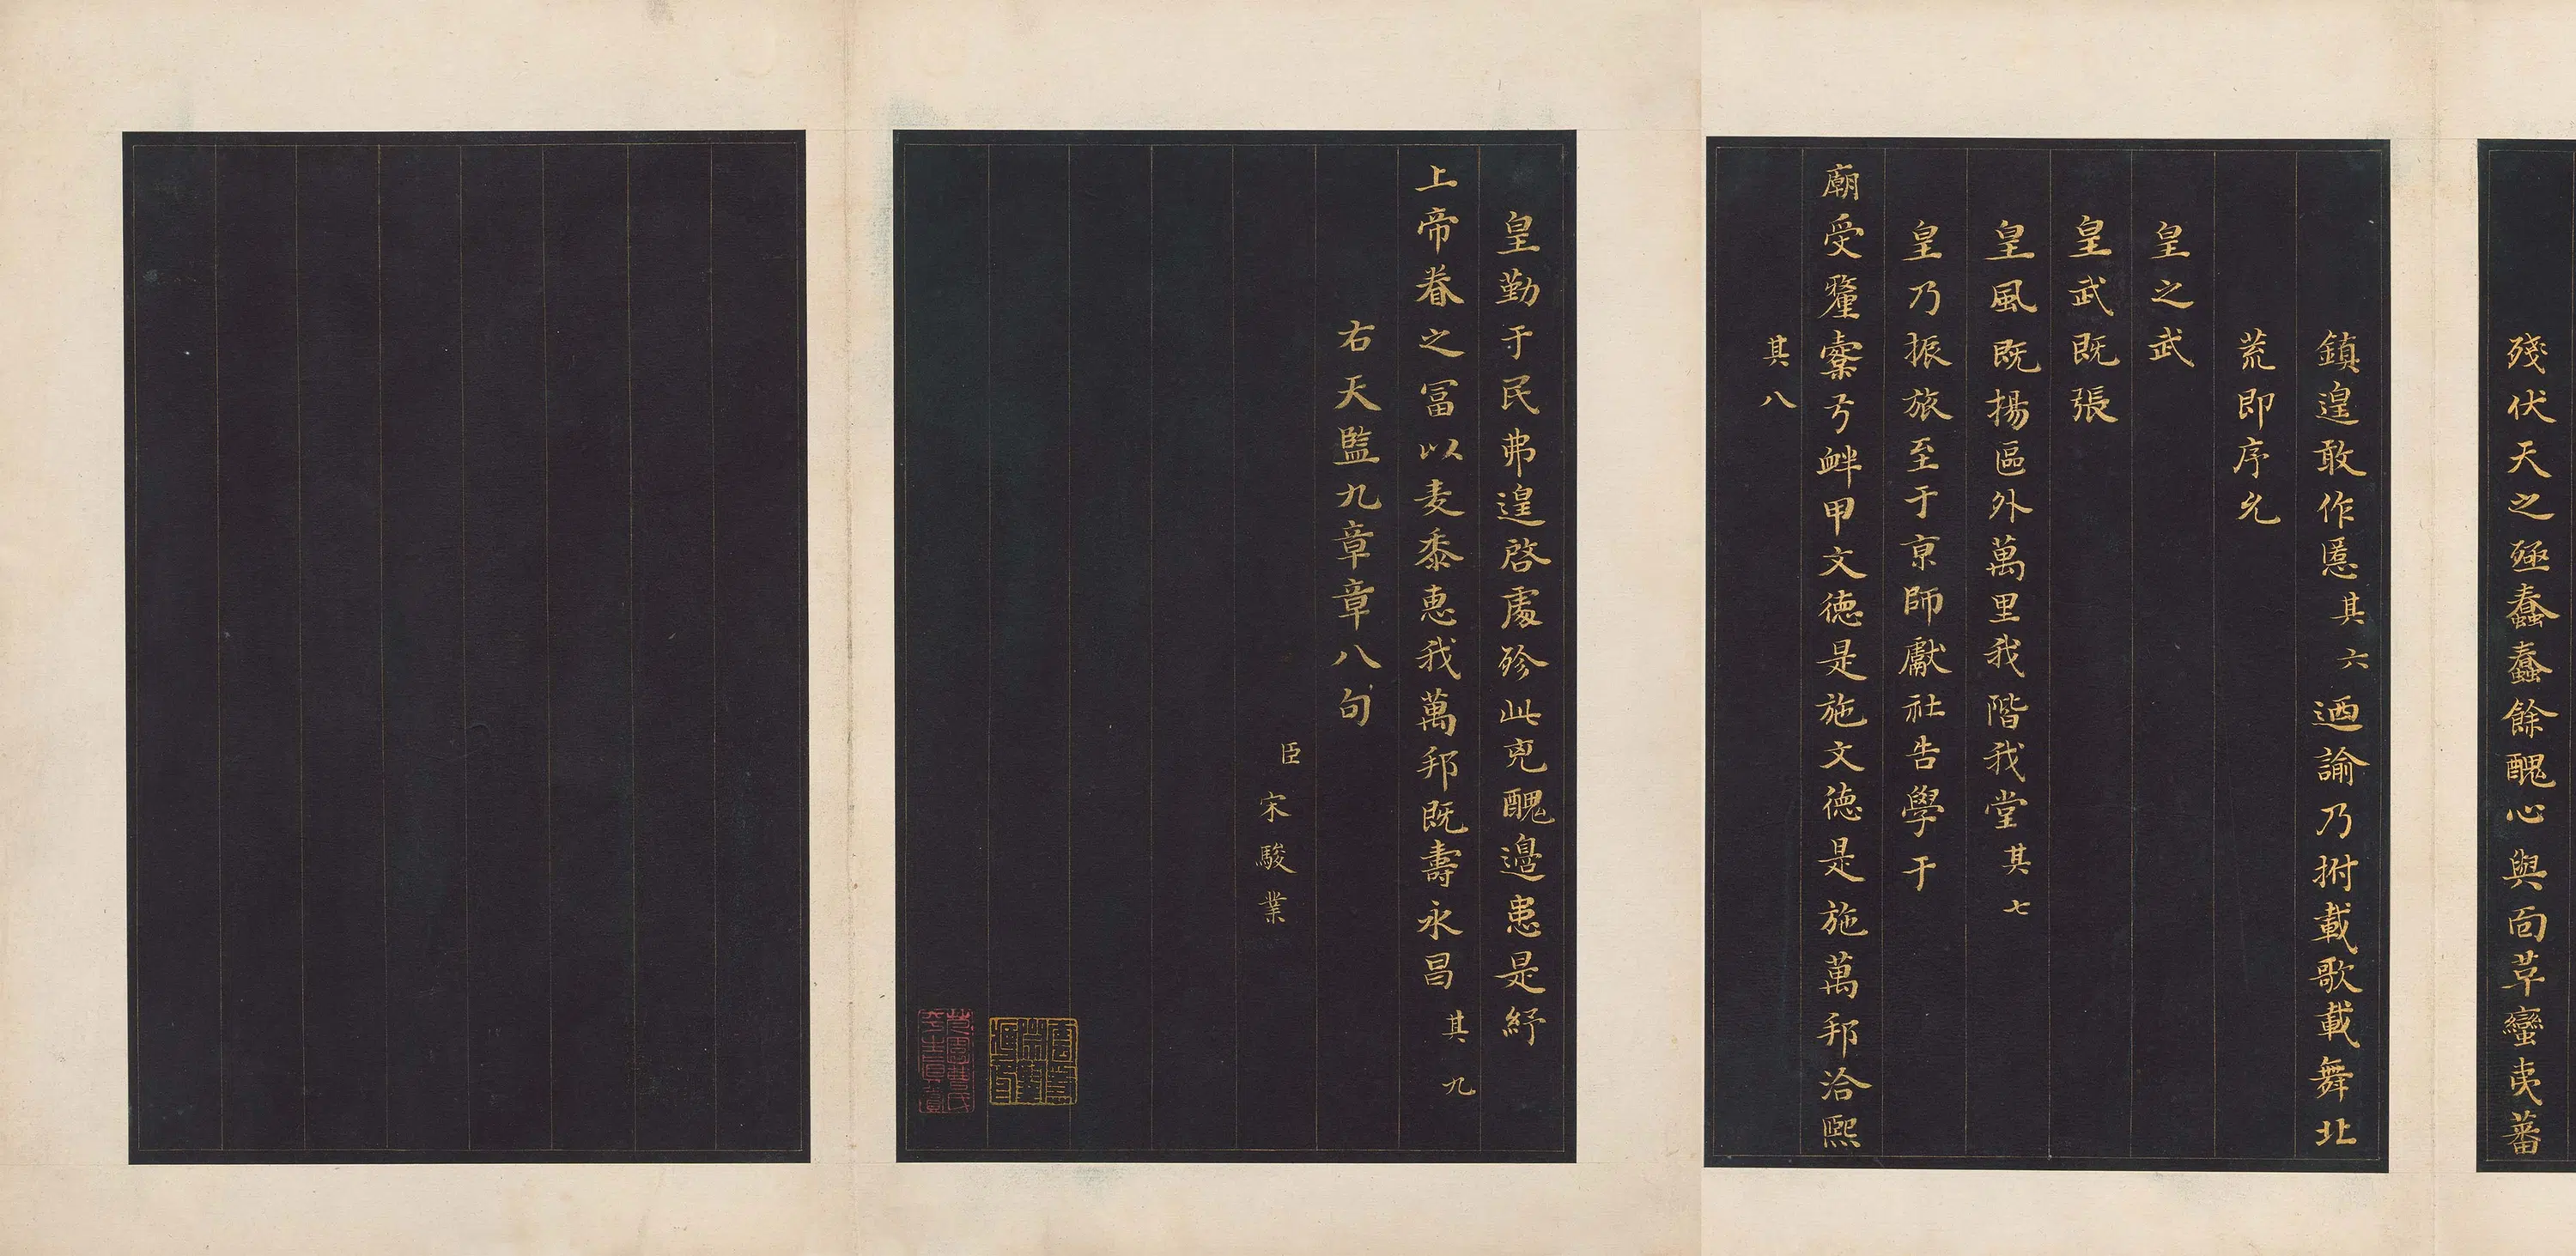 殘伏天之殛蠢蠢餘醜心與面革蠻夷蕃
鎮遑敢作慝其六迺諭乃拊載歌載舞北
荒即序允
皇之武
皇武既張
皇風既揚區外萬里我階我堂其七
皇乃振旅至于京師獻社告學于
廟受釐櫜弓衅甲文德是施文德是施萬邦洽熙
其八
皇勤于民弗遑啓處殄此兇醜邊患是紓
上帝眷之冨以麦黍惠我萬邦既壽永昌其九
右天監九章章八句
臣宋駿業